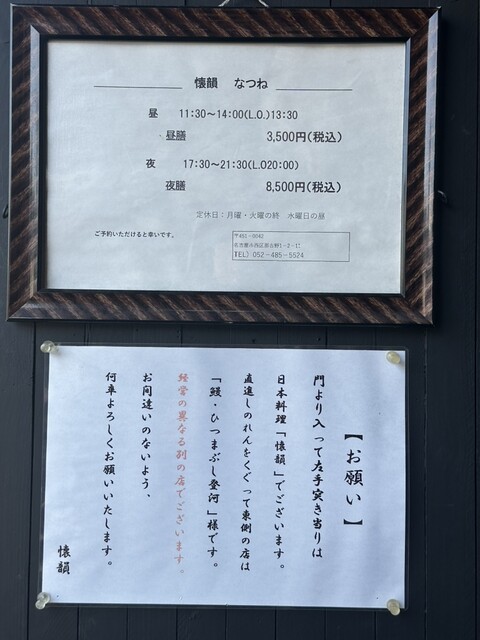 懐韻 なつね
昼 11:30～14:00(L.O.)13:30
昼膳 3,500円(税込)
夜 17:30～21:30(L.O20:00)
夜膳 8,500円(税込)
定休日：月曜・火曜の終 水曜日の昼
ご予約いただけると幸いです。
TEL） 052－485－5524
【お願い】
門より入って左手突き当りは
日本料理「懐韻」でございます。
直進しのれんをくぐって東側の店は
「鰻・ひつまぶし登河」様です。
経営の異なる別の店でございます。
お間違いのないよう、
何卒よろしくお願いいたします。
懐韻